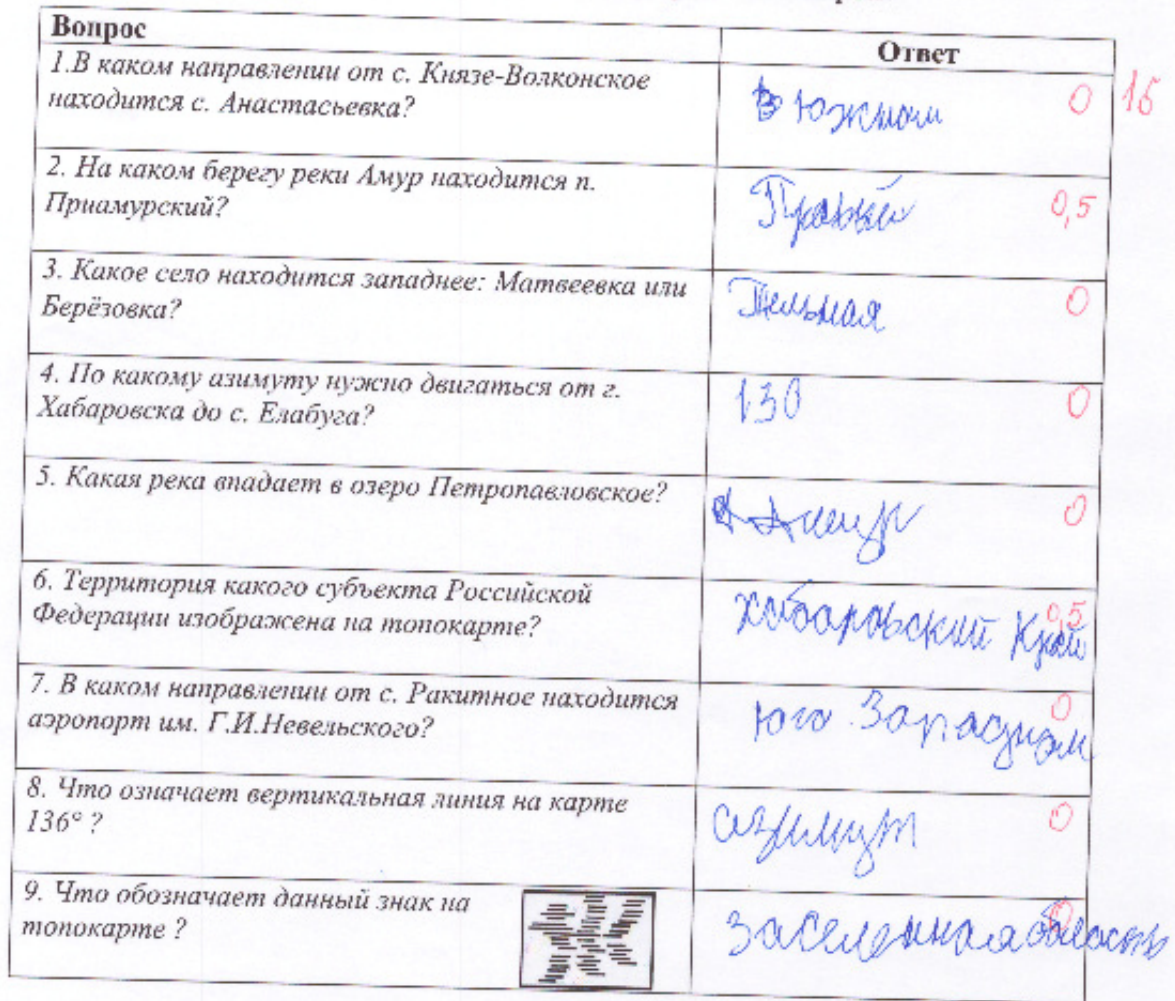 Вопрос
Ответ
1.В каком направлении от с. Князе-Волконское
находится с. Анастасьевка?
В Южном
0
1б
2. На каком берегу реки Амур находится п.
Приамурский?
Правый
0,5
3. Какое село находится западнее: Матвеевка или
Берёзовка?
0
4. По какому азимуту нужно двигаться от г.
Хабаровска до с. Елабуга?
130
0
5. Какая река впадает в озеро Петропавловское?
Амур
0
6. Территория какого субъекта Российской
Федерации изображена на топокарте?
Хабаровский Край
0,5
7. В каком направлении от с. Ракитное находится
аэропорт им. Г.И.Невельского?
Юго Западном
0
8. Что означает вертикальная линия на карте
136° ?
азимут
0
9. Что обозначает данный знак на
топокарте ?
Заселенная область
0